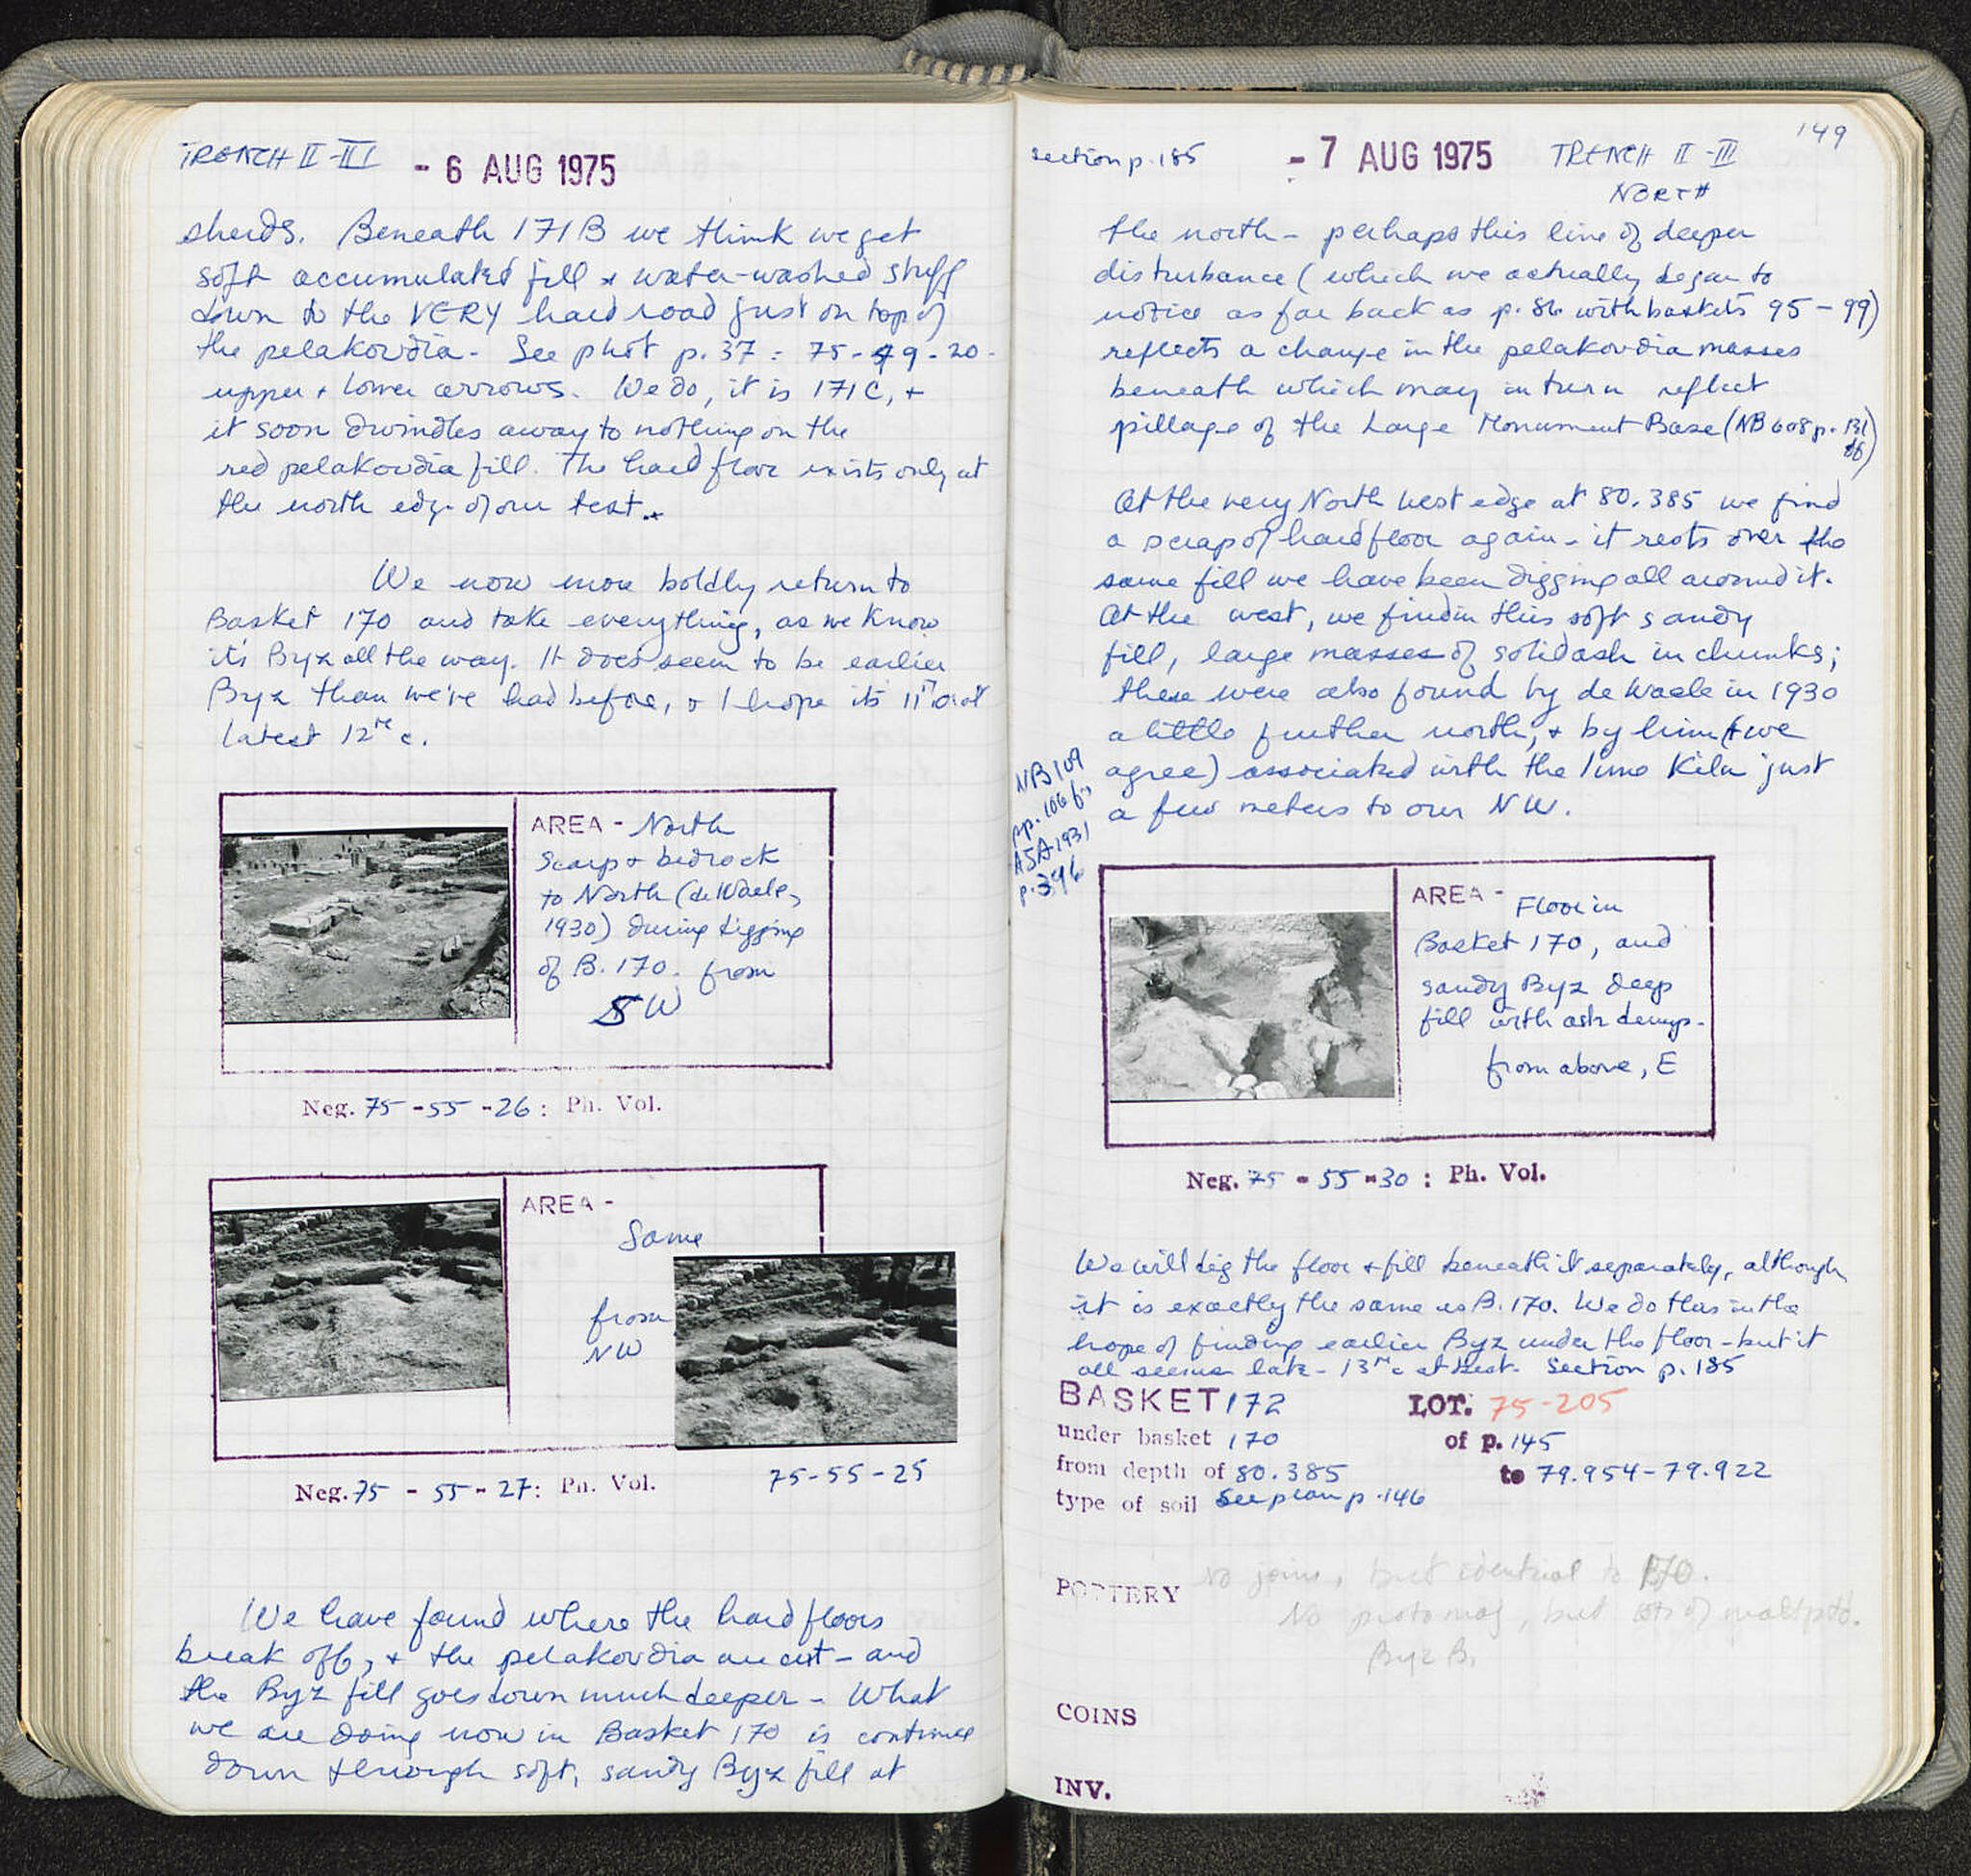 TRENCH II-III
- 6 AUG 1975
sherds. Beneath 171B we think we get
soft accumulated fill & water-washed stuff
down to the VERY hard road just on top of
the pelakovdia. See phot p. 37 : 75-49-20-
upper + lower arrows. We do, it is 171C, +
it soon dwindles away to nothing on the
red pelakovdia fill. The hard floor exists only at
the north edge of our test.
We now more boldly return to
Basket 170 and take everything, as we know
it's Byz all the way. It does seem to be earlier
Byz than we've had before, & I hope its 11th or at
latest 12th c.
AREA - North
Scarp + bedrock
to North (de Waele,
1930) during digging
of B. 170. from
SW
Neg. 75-55-26: Ph. Vol.
AREA -
Same
from
NW
Neg. 75-55-27: Ph. Vol.
75-55-25
We have found where the hard floors
break off, + the pelakovdia are cut - and
the Byz fill goes down much deeper - What
we are doing now in Basket 170 is continue
down through soft, sandy Byz fill at
149
section p. 185
- 7 AUG 1975
TRENCH II-III
NORTH
the north - perhaps this line of deeper
disturbance (which we actually began to
notice as far back as p. 86 with baskets 95-99)
reflects a change in the pelakovdia masses
beneath which may in turn reflect
pillage of the Large Monument Base (NB 608 p. 131
ff)
At the very North west edge at 80.385 we find
a scrap of hard floor again - it rests over the
same fill we have been digging all around it.
At the west, we find in this soft sandy
fill, large masses of solid ash in chunks;
these were also found by de Waele in 1930
a little further north, + by him (+ we
agree) associated with the lime Kiln just
a few meters to our NW.
NB 109
pp. 106 ff
ASA 1931
p. 396
AREA - Floor in
Basket 170, and
sandy Byz deep
fill with ash dumps.
from above, E
Neg. 75-55-30: Ph. Vol.
We will dig the floor + fill beneath it separately, although
it is exactly the same as B. 170. We do this in the
hope of finding earlier Byz under the floor - but it
all seems late - 13th c at best. Section p. 185
BASKET 172
LOT: 75-205
under basket 170
of p. 145
from depth of 80.385
to 79.954-79.922
type of soil See plan p. 146
POTTERY No joins, but identical to 170.
No protomaj, but lots of matt ptd.
Byz B.
COINS
INV.